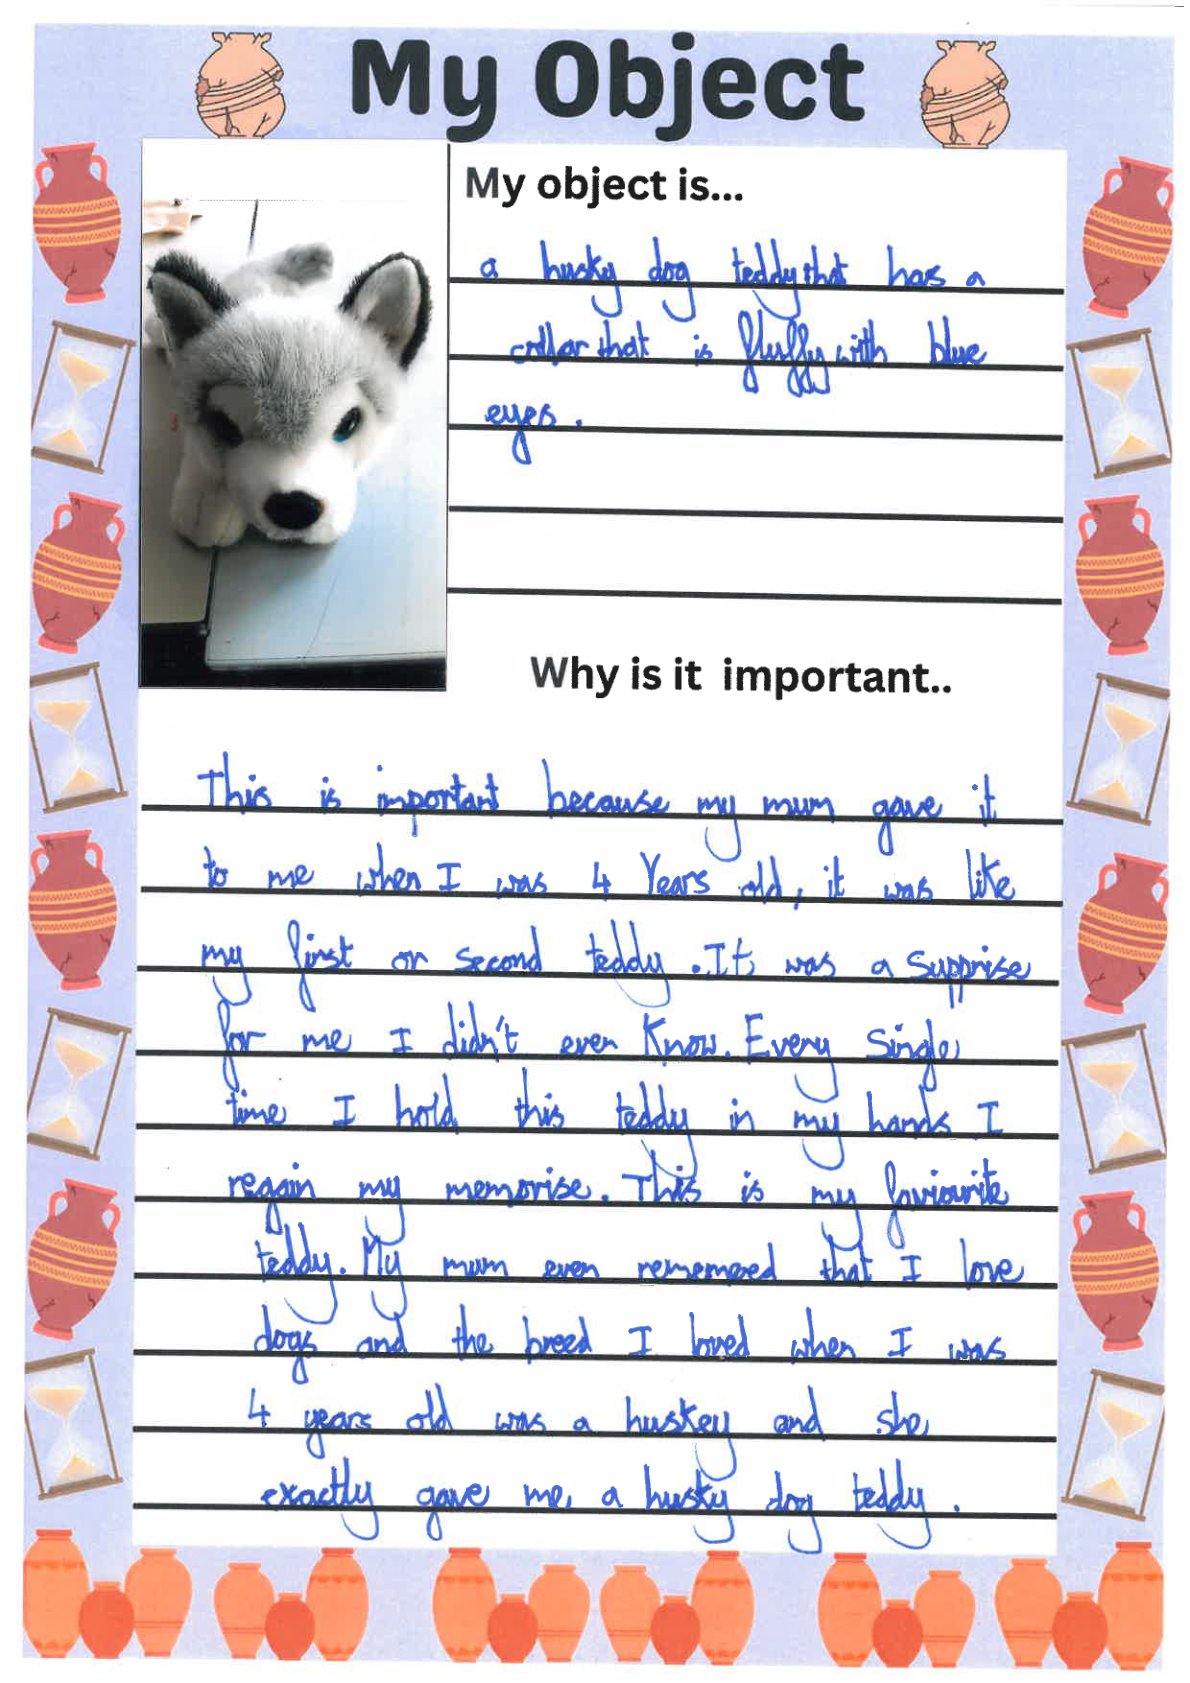 My Object
My object is...
a husky dog teddy that has a
collar that is fluffy with blue
eyes.
Why is it important..
This is important because my mum gave it
to me when I was 4 Years old, it was like
my first or second teddy. It was a supprise
for me I didn't even Know. Every Single
time I hold this teddy in my hands I
regain my memorise. This is my faviourite
teddy. My mum even rememered that I love
dogs and the breed I loved when I was
4 years old was a huskey and she
exactly gave me a husky dog teddy.